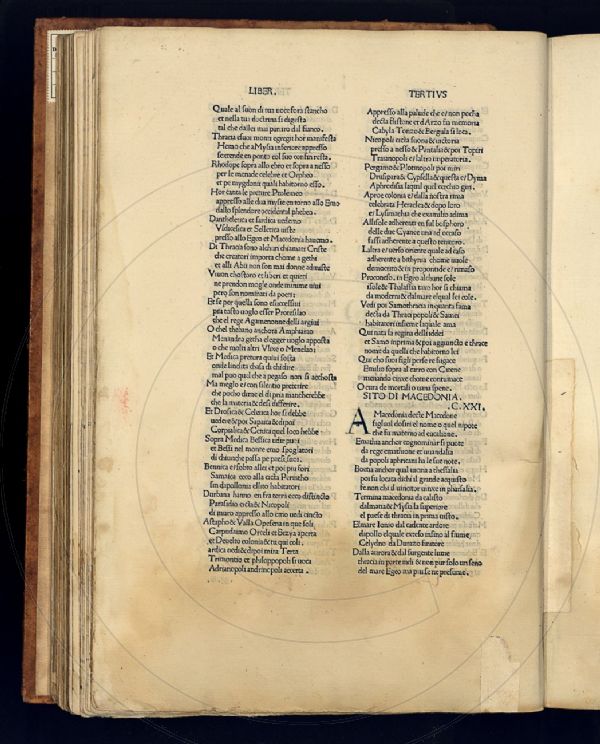 LIBER.
Quale al suon di tua uoce fora stancho
et nella tua doctrina si digesta
tal che dallei mai parraro dal fianco.
Thracia
Hemo che a Mysia inferiore appresso
se extende en ponto col suo confin resta.
Rhodope sopra allo ebro et sopra a nesso
per le menade celebre et Orpheo
et pe mygdoni quali habitorno esso.
Hor canta le preture Ptolemeo
appresso alle dua mysie en torno allo Emo
dallo splendore occidental phebeo.
Dantheletica et sardica uedemo
Vsdicesica et Selletica
presso allo Egeo et Macedonia hauemo.
Di Thracia sono alchuri chiamati Criste
che creatori importa chome a gethi
et alli Abii non son mai donne
Viuon chostoro et liberi et quieti
ne prendon mogle onde minime uiui
pero son nominati da poeti
Et se per quella sono
piu tasto uoglo esser Protesilao
che el rege Agamenonne delli argiui
O chel thebano anchora Amphiarao
Menandra getha el egger uoglo apposta
o che molti altri Vlixe o Menelao
Et Medica pretura quiui
onde lundita
mal puo quel che a pegaso non si acchosta
Ma meglo e con silentio preterire
che pocho dirne el di pria mancherebbe
che la materia & desi differire.
Et Drosica & Celetica hor si debbe
uedere & poi Sapaica & dipoi
Corpialica & Cenica quel loco hebbe
Sopra Medica Bessica
et Bessi nel monte emo spoglatori
di chiunque passa pe paesi
Bennica e sobro allei et poi piu fori
Samaica ecco alla cicla Perintho
sin dipollonia ellito habitatori
Durbana hanno en fra terra ecco distincto
Parasidio octa & Nicopoli
di muro appresso allo emo uedi cincto
& Valla Opesena in que soli
Carpudaimo Orcelt et Bizya aperta
et Deuelto colonia & tu qui coli.
ardica uedi & dipoi mira Terta
Trimontio et philippopoli si uoca
Adrianopoli andrinopoli accerta.
TERTIVS
Appresso alla palude che e non pocha
decta Bistone et Arzo fia memoria
Cabyla Tonzo & Bergula si loca.
Nicopoli
presso a nesso & Pintalia & poi Topiri
Traianopoli et laltro imperatoria.
Pergamo & Plotinopoli poi miri
Drusipara & Cypsella & questa e Dyma
Aphrodisia laqual quel cerchio giri.
Apro e colonia et dalla nostra rima
celebrata Heraclea & dopo loro
et Lysimachia che examino adima
Allisole adherenti en sul bosphoro
delle due Cyanee una ad occaso
fussi adherente a questo territoro.
Laltra e uerso oriente quale ad caso
adherente a bithynia chome uuole
democrito & in propontide e rimaso
Proconeso. in Egeo alchune sole
isole & Thalassia tato hor si chiama
da moderni & dalmare equal sei cole.
Vedi poi Samothracia in quanta fama
decta da Thracipopoli & Samei
habitatori insieme laquale ama
Qui nata la regina delli iddei
et Samo inprima & poi aggiuncto e thrace
nomi da quella che habitorno lei
Qui cho suoi figli perse re fugace
Emilio sopra al carro con Catene
menando cinxe chome contumace
O cura de mortali o uana spene
SITO DI MACEDONIA.
.C.XXI.
A Macedonia decte Macedone
figliuol dosiri el nome o quel nipote
che fu materno ad eucalione.
Emathia anchor cognominar si puote
da rege emathione et una dalia
da popoli aphricani ha le sue note.
Boetia anchor qual uicina a thessalia
poi su locata dichi il grande acquisto
fe non chi il uincitor uinxe in pharsalia.
Termina macedonia da calisto
dalmatia & Mysia la superiore
el paese di thracia in prima uisto.
El mare Ionio dal cadente ardore
dapollo el quale exteso insino al fiume
Celydno da Durazo
Dalla aurora & dal surgente lume
thracia in parte uidi & non pur solo un seno
del mare Egeo ma piu se ne presume.